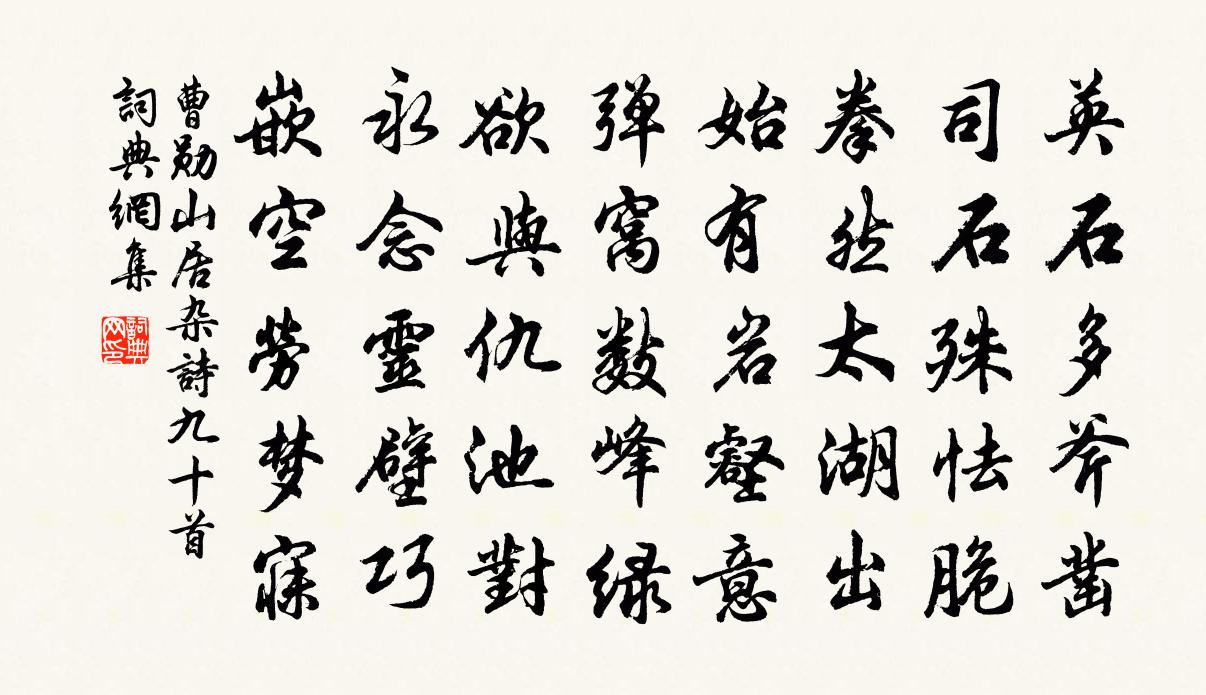 英石多斧凿
司石殊怯脆
拳然太湖出
始有岩壑意
弹窝数峰绿
欲與仇池對
永念靈壁巧
嵌空勞梦寐
曹勋山居杂詩九十首
詞典網集
詞典网印